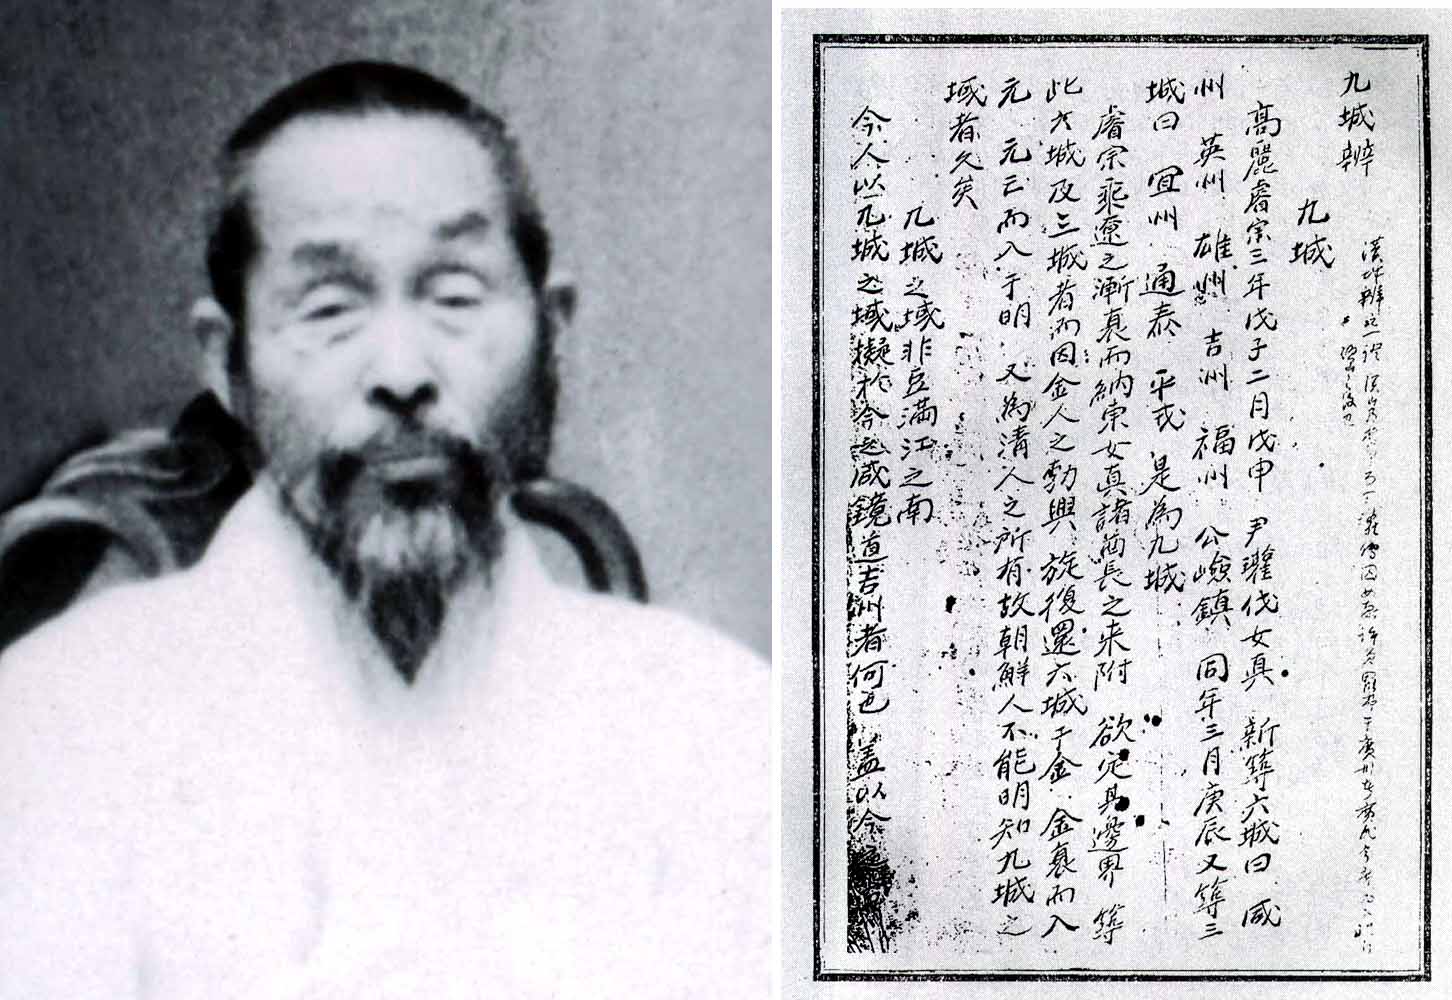 九城辨
九城
高麗睿宗三年戊子二月戊申 尹瓘伐女真 新築六城曰 咸
州 英州 雄州 吉洲 福州 公嶮鎮 同年三月庚辰又築三
城曰 宜州 通泰 平戎 是為九城
睿宗乘遼之漸衰而納東女真諸酋長之来附 欲定其邊界 築
此六城及三城者而因金人之勃興 旋復還六城于金 金衰而入
元 元亡而入于明 又為清人之所有故朝鮮人不能明知九城之
域者久矣
九城之域非豆満江之南
今人以九城之域擬於今之咸鏡道吉州者何也 盖以今之